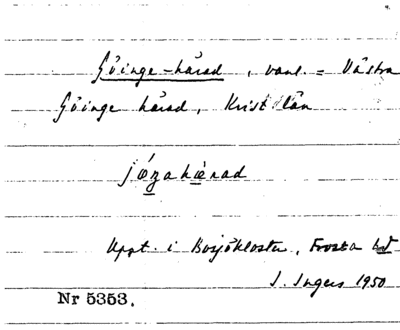 Göinge-härad, vanl. = Västra
Göinge härad, Krist. län
Uppt. i Bosjökloster, Frosta hd
I. Ingers 1950
Nr 5353.